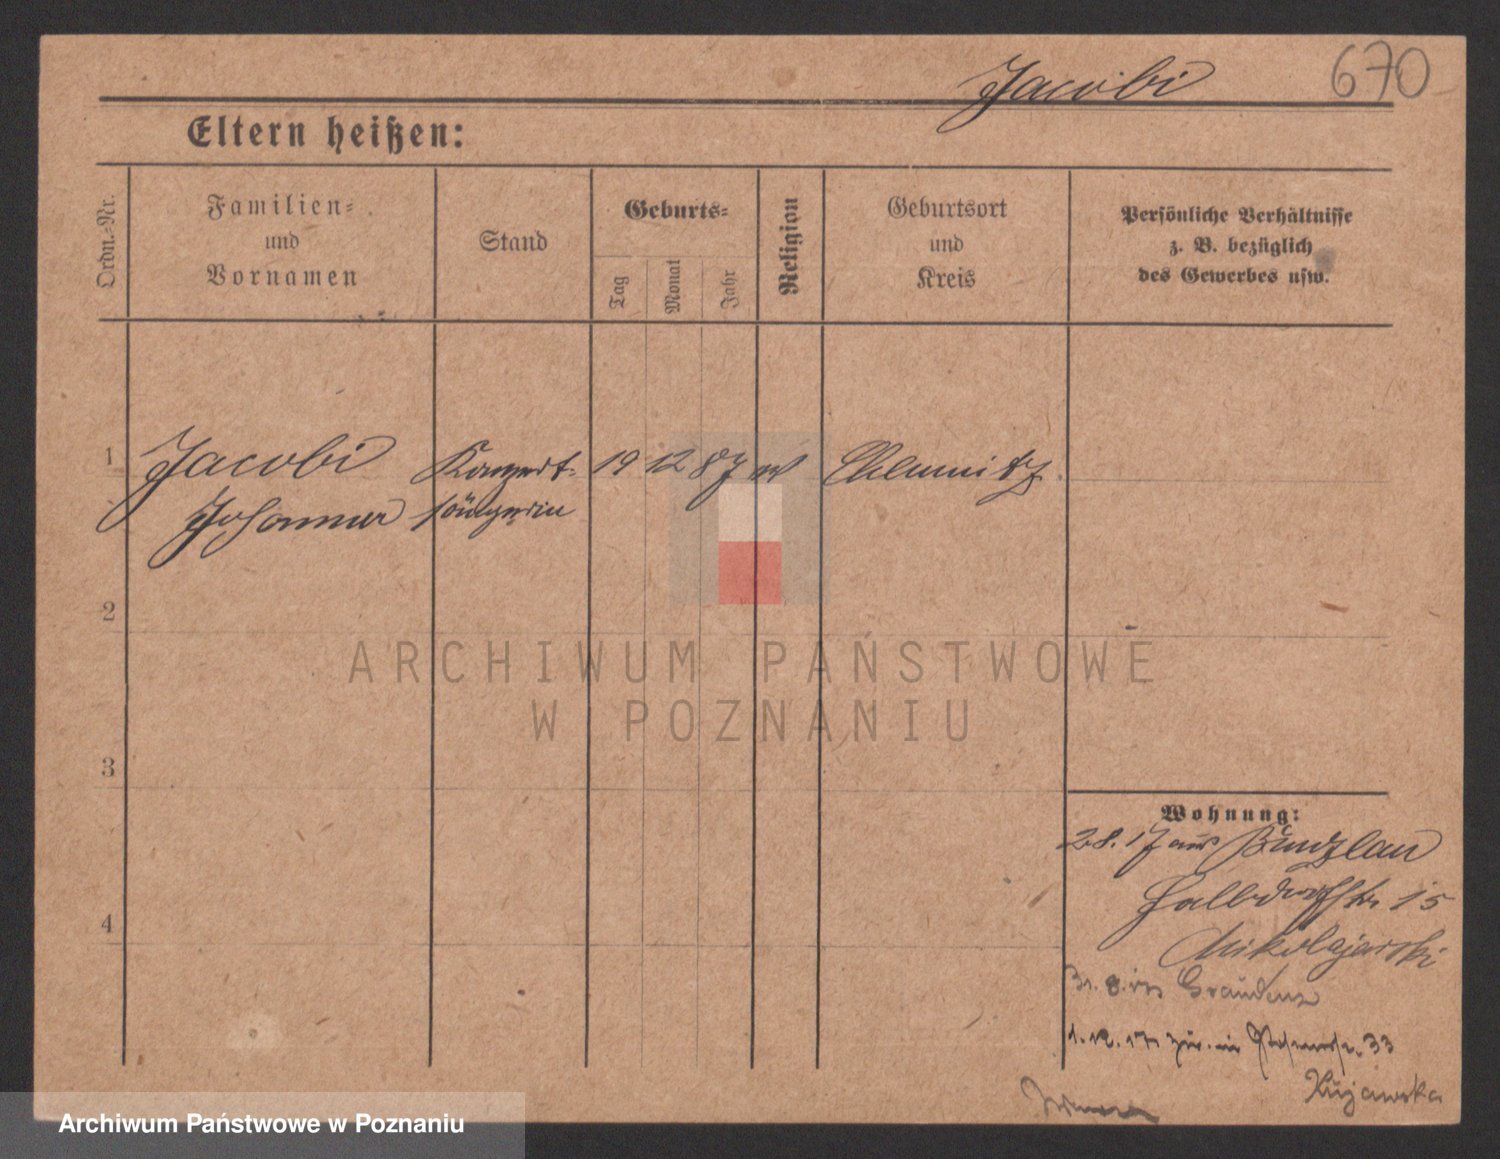 Jacobi 670
Eltern heißen:
Ordn.-Nr.
Familien-
und
Vornamen
Stand
Geburts-
Tag
Monat
Jahr
Religion
Geburtsort
und
Kreis
Persönliche Verhältnisse
z. B. bezüglich
des Gewerbes usw.
1 Jacobi Konzert- 19 12 87 ev Chemnitz
Johanna sängerin
2
3
4
Wohnung:
2.8.17 aus Bunzlau
Halbdorfstr 15
Mikolajewski
31.8.17 Graudenz
1.12.17 zur. in 33
Kujawska
ARCHIWUM PAŃSTWOWE
W POZNANIU
Archiwum Państwowe w Poznaniu